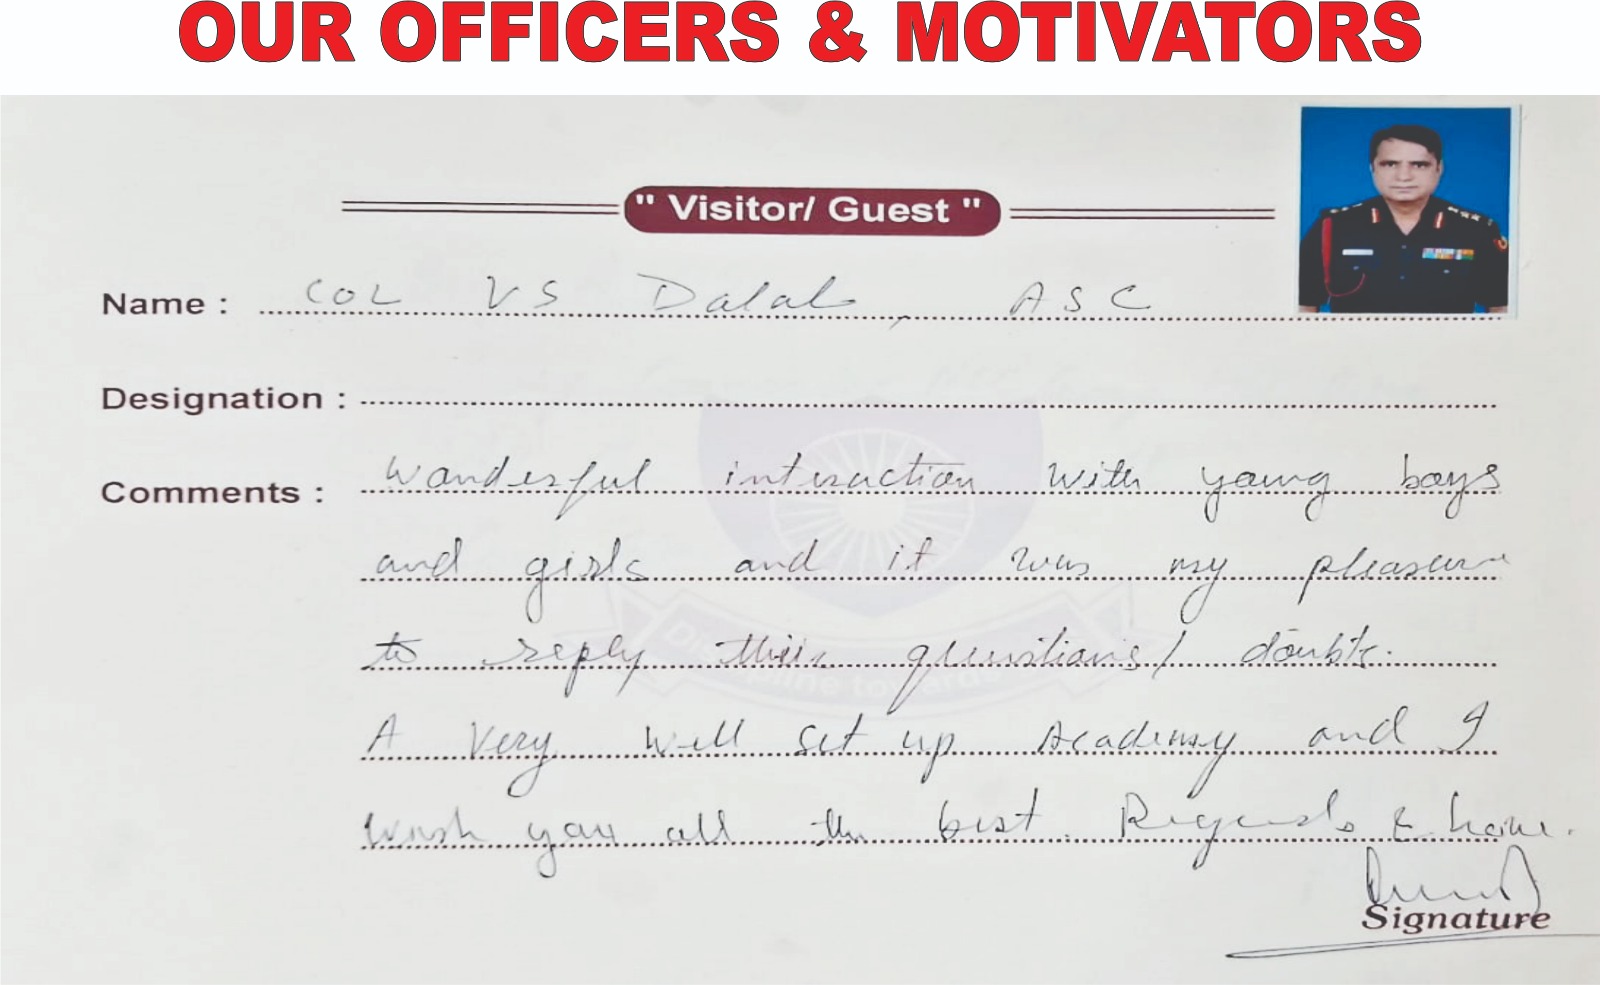 OUR OFFICERS & MOTIVATORS
" Visitor/ Guest "
Name : COL VS Dalal, ASC
Designation :
Comments : Wonderful interaction with young boys
and girls and it was my pleasure
to reply their questions/ doubts.
A very well set up Academy and I
wish you all the best. Regards &
Signature